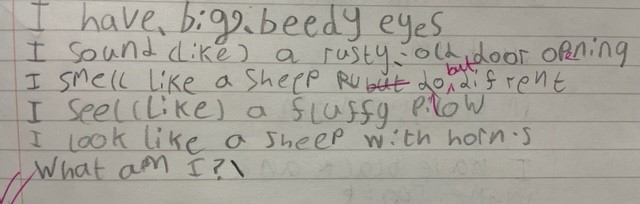 I have, big, beedy eyes
I sound (like) a rusty, old, door opening
I smell like a sheep but do difrent
I feel (like) a fluffy pillow
I look like a sheep with horn.s
What am I?